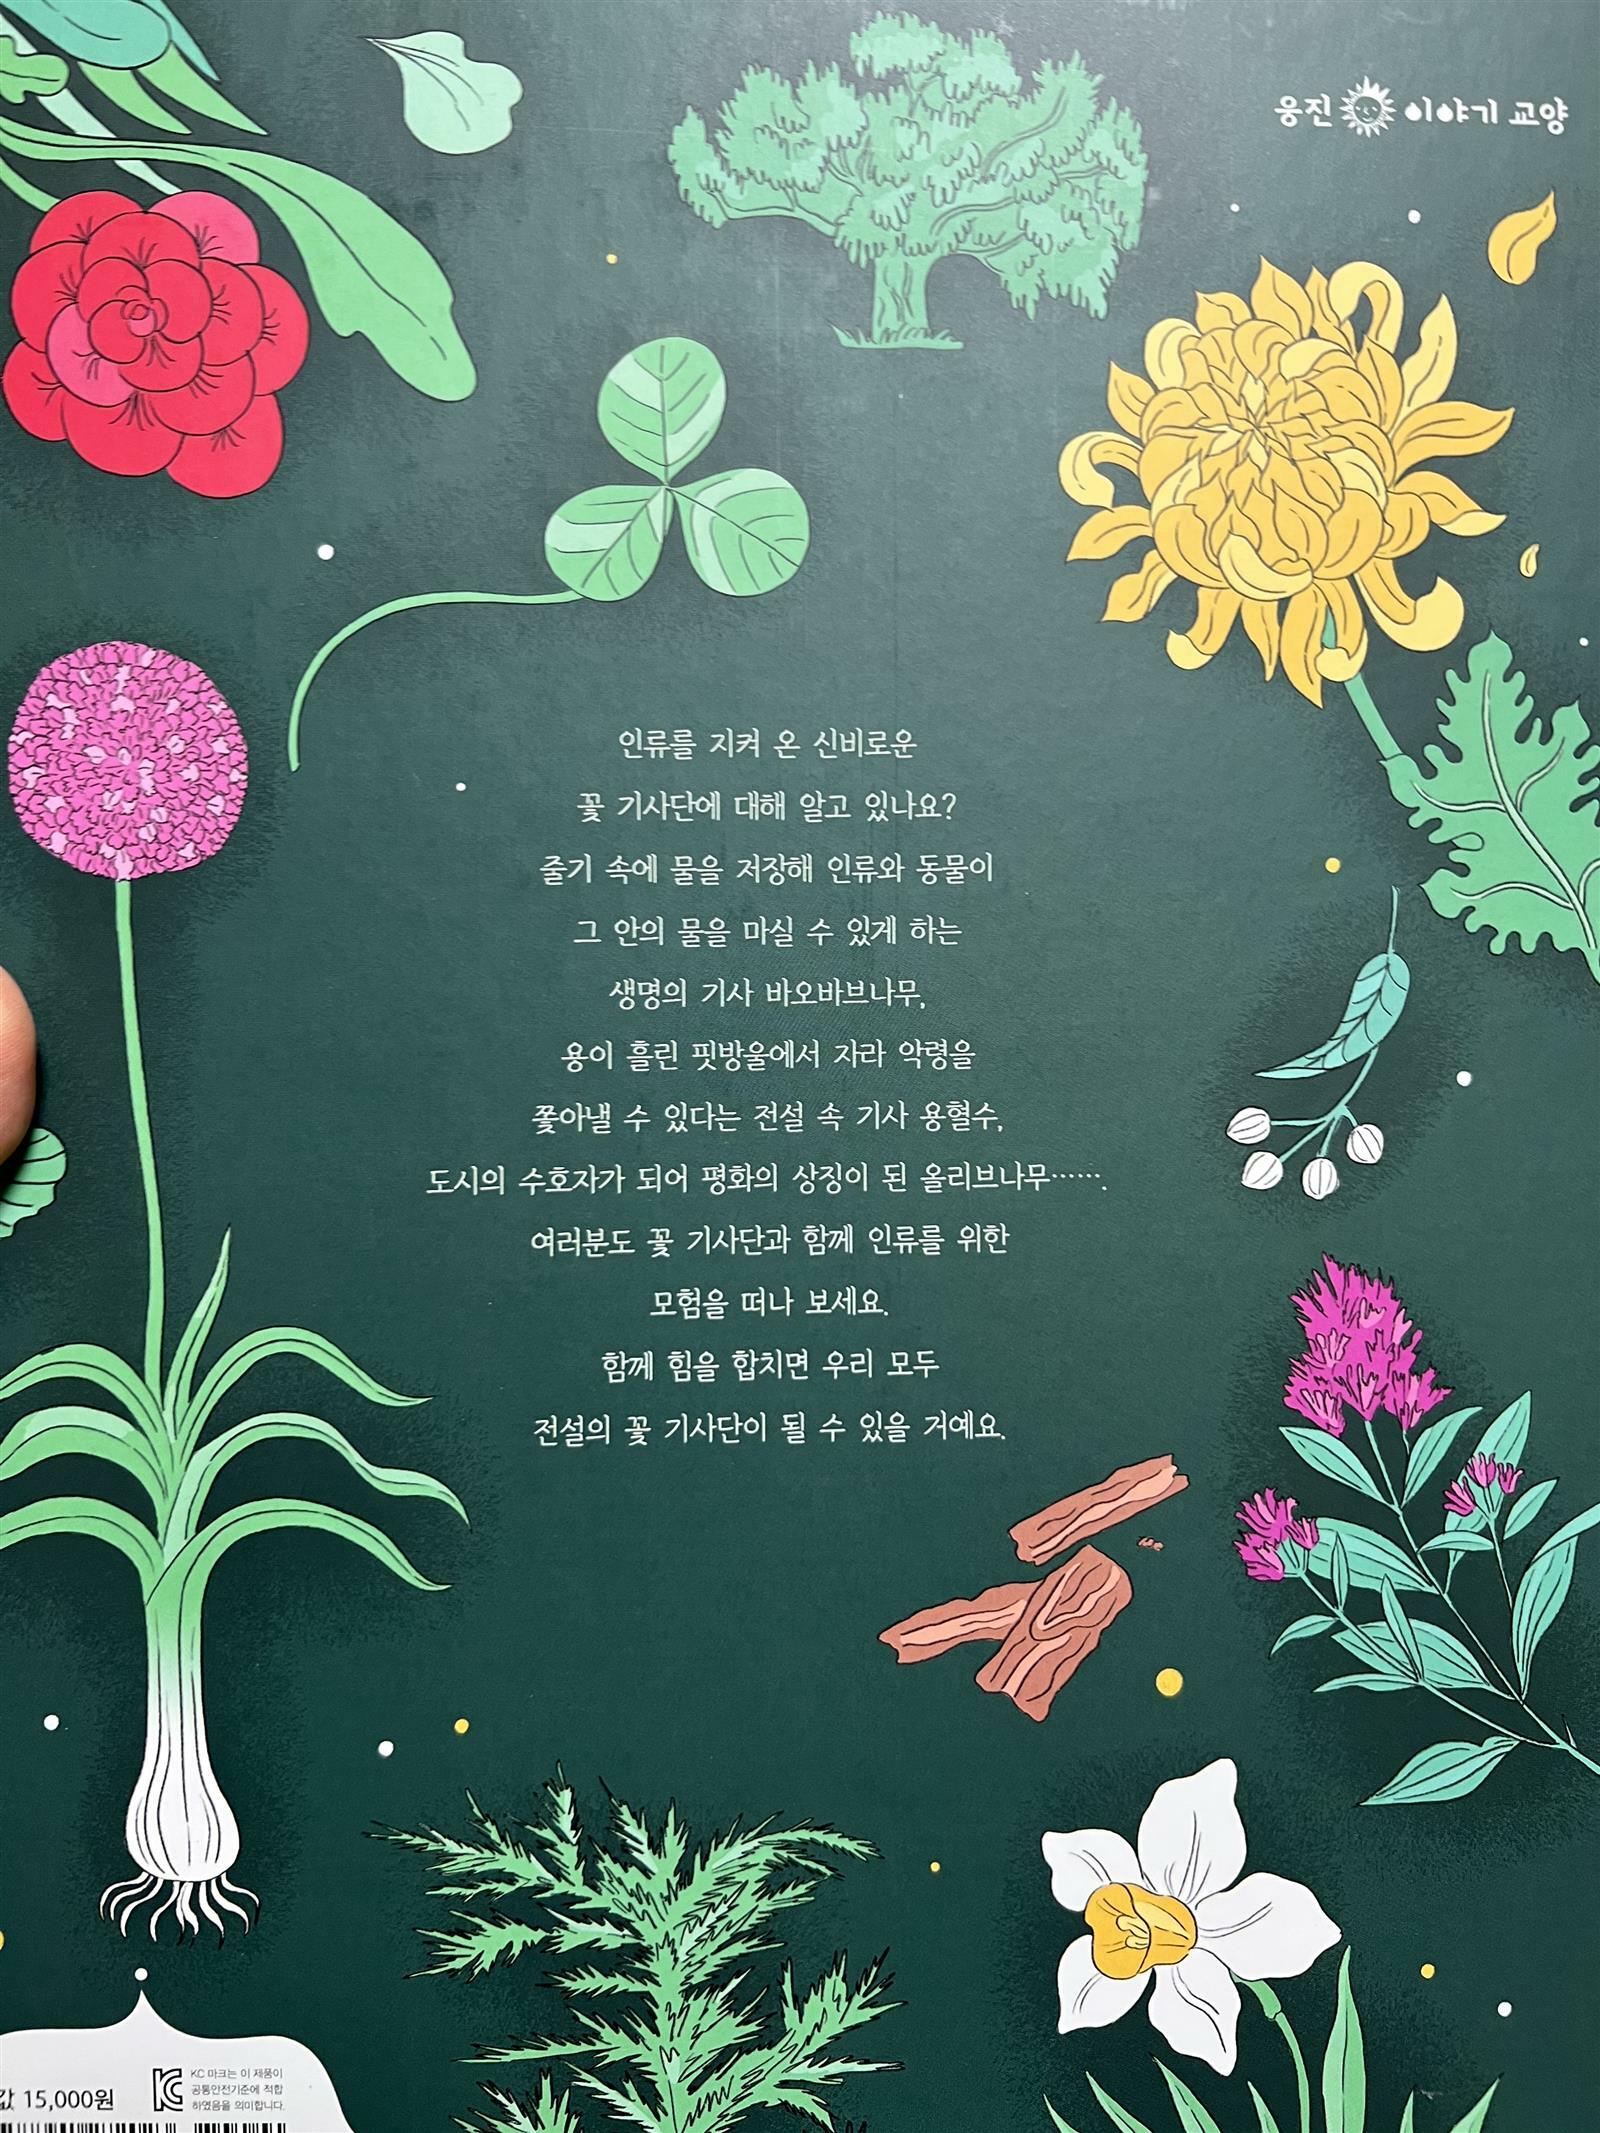 웅진 이야기 교양
인류를 지켜 온 신비로운
꽃 기사단에 대해 알고 있나요?
줄기 속에 물을 저장해 인류와 동물이
그 안의 물을 마실 수 있게 하는
생명의 기사 바오바브나무,
용이 흘린 핏방울에서 자라 악령을
쫓아낼 수 있다는 전설 속 기사 용혈수,
도시의 수호자가 되어 평화의 상징이 된 올리브나무…….
여러분도 꽃 기사단과 함께 인류를 위한
모험을 떠나 보세요.
함께 힘을 합치면 우리 모두
전설의 꽃 기사단이 될 수 있을 거예요.
값 15,000원
KC 마크는 이 제품이
공통안전기준에 적합
하였음을 의미합니다.